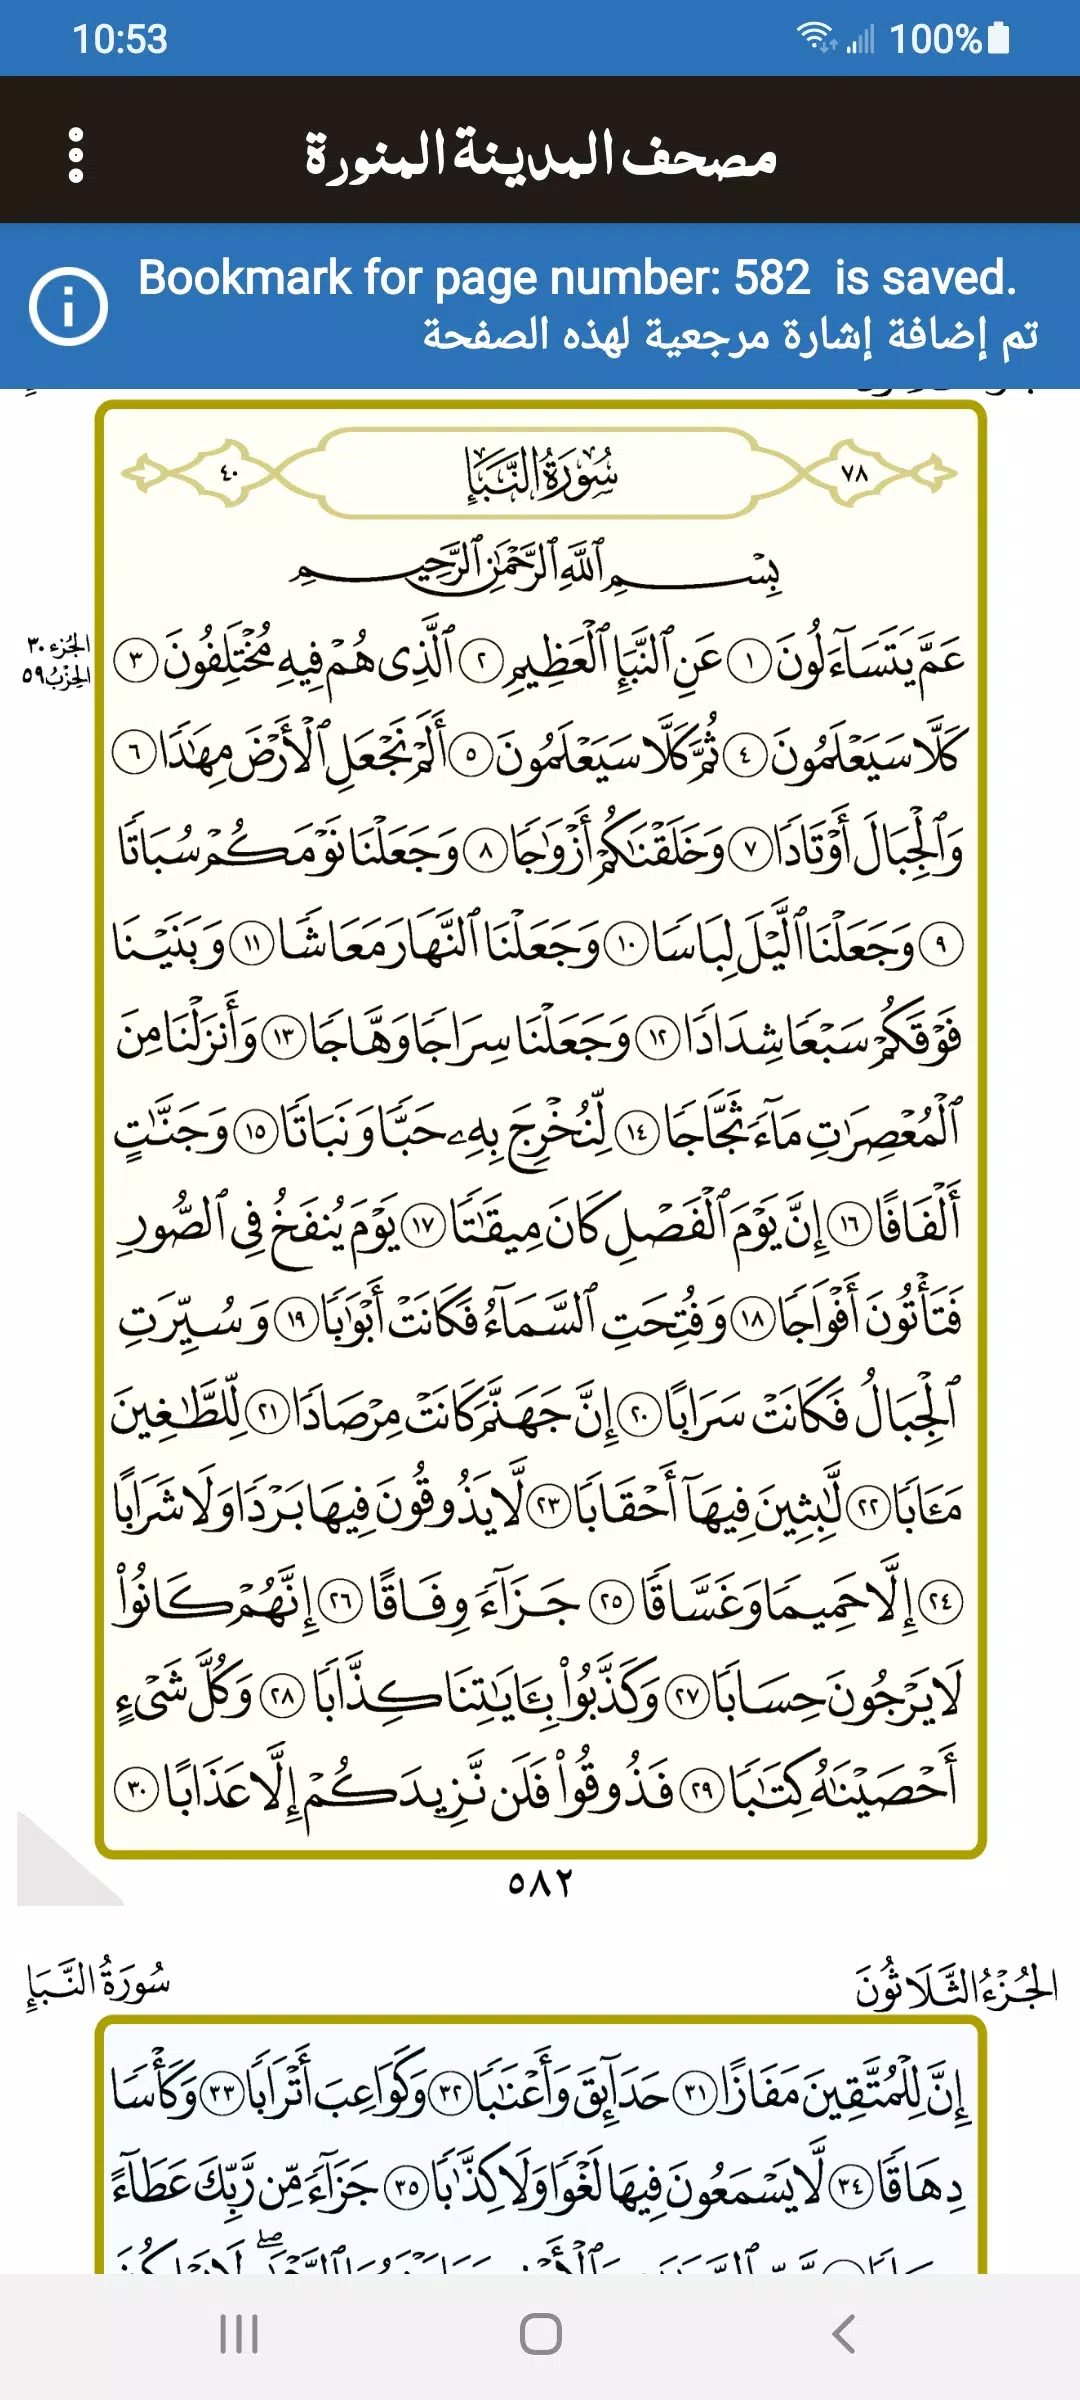 10:53 100%
مصحف المدينة المنورة
Bookmark for page number: 582 is saved.
تم إضافة إشارة مرجعية لهذه الصفحة
٧٨ سُورَةُ النَّبَإِ ٤٠
بِسْمِ ٱللَّهِ ٱلرَّحْمَٰنِ ٱلرَّحِيمِ
الجزء ٣٠
الحزب ٥٩
عَمَّ يَتَسَآءَلُونَ ١ عَنِ ٱلنَّبَإِ ٱلْعَظِيمِ ٢ ٱلَّذِى هُمْ فِيهِ مُخْتَلِفُونَ ٣
كَلَّا سَيَعْلَمُونَ ٤ ثُمَّ كَلَّا سَيَعْلَمُونَ ٥ أَلَمْ نَجْعَلِ ٱلْأَرْضَ مِهَٰدًا ٦
وَٱلْجِبَالَ أَوْتَادًا ٧ وَخَلَقْنَٰكُمْ أَزْوَٰجًا ٨ وَجَعَلْنَا نَوْمَكُمْ سُبَاتًا
٩ وَجَعَلْنَا ٱلَّيْلَ لِبَاسًا ١٠ وَجَعَلْنَا ٱلنَّهَارَ مَعَاشًا ١١ وَبَنَيْنَا
فَوْقَكُمْ سَبْعًا شِدَادًا ١٢ وَجَعَلْنَا سِرَاجًا وَهَّاجًا ١٣ وَأَنزَلْنَا مِنَ
ٱلْمُعْصِرَٰتِ مَآءً ثَجَّاجًا ١٤ لِّنُخْرِجَ بِهِۦ حَبًّا وَنَبَاتًا ١٥ وَجَنَّٰتٍ
أَلْفَافًا ١٦ إِنَّ يَوْمَ ٱلْفَصْلِ كَانَ مِيقَٰتًا ١٧ يَوْمَ يُنفَخُ فِى ٱلصُّورِ
فَتَأْتُونَ أَفْوَاجًا ١٨ وَفُتِحَتِ ٱلسَّمَآءُ فَكَانَتْ أَبْوَٰبًا ١٩ وَسُيِّرَتِ
ٱلْجِبَالُ فَكَانَتْ سَرَابًا ٢٠ إِنَّ جَهَنَّمَ كَانَتْ مِرْصَادًا ٢١ لِّلطَّٰغِينَ
مَـَٔابًا ٢٢ لَّٰبِثِينَ فِيهَآ أَحْقَابًا ٢٣ لَّا يَذُوقُونَ فِيهَا بَرْدًا وَلَا شَرَابًا
٢٤ إِلَّا حَمِيمًا وَغَسَّاقًا ٢٥ جَزَآءً وِفَاقًا ٢٦ إِنَّهُمْ كَانُوا۟
لَا يَرْجُونَ حِسَابًا ٢٧ وَكَذَّبُوا۟ بِـَٔايَٰتِنَا كِذَّابًا ٢٨ وَكُلَّ شَىْءٍ
أَحْصَيْنَٰهُ كِتَٰبًا ٢٩ فَذُوقُوا۟ فَلَن نَّزِيدَكُمْ إِلَّا عَذَابًا ٣٠
٥٨٢
الجُزْءُ الثَّلَاثُونَ سُورَةُ النَّبَإِ
إِنَّ لِلْمُتَّقِينَ مَفَازًا ٣١ حَدَآئِقَ وَأَعْنَٰبًا ٣٢ وَكَوَاعِبَ أَتْرَابًا ٣٣ وَكَأْسًا
دِهَاقًا ٣٤ لَّا يَسْمَعُونَ فِيهَا لَغْوًا وَلَا كِذَّٰبًا ٣٥ جَزَآءً مِّن رَّبِّكَ عَطَآءً